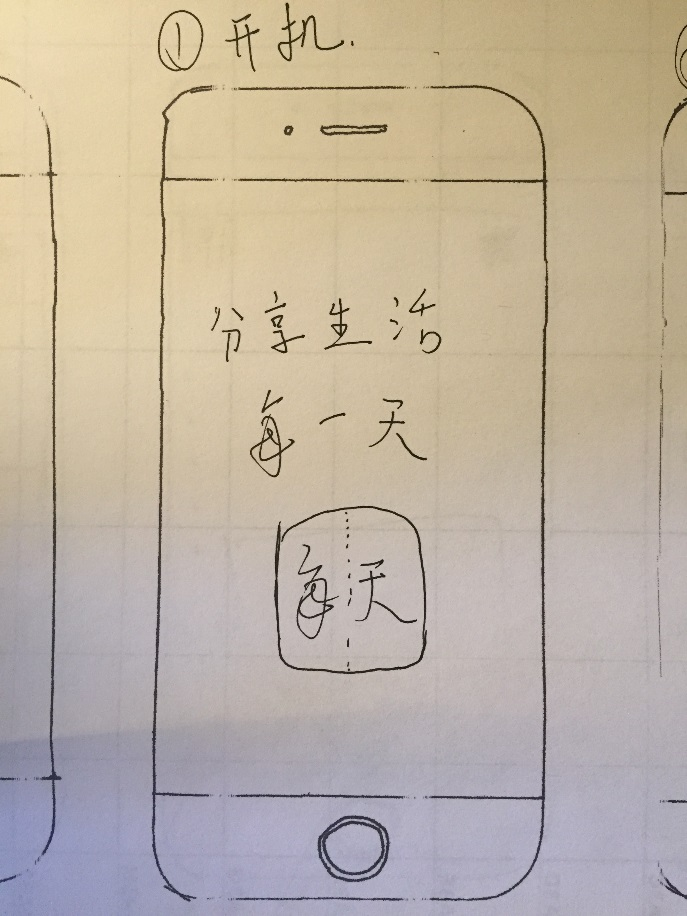 ① 开机.
分享生活
每一天
每天